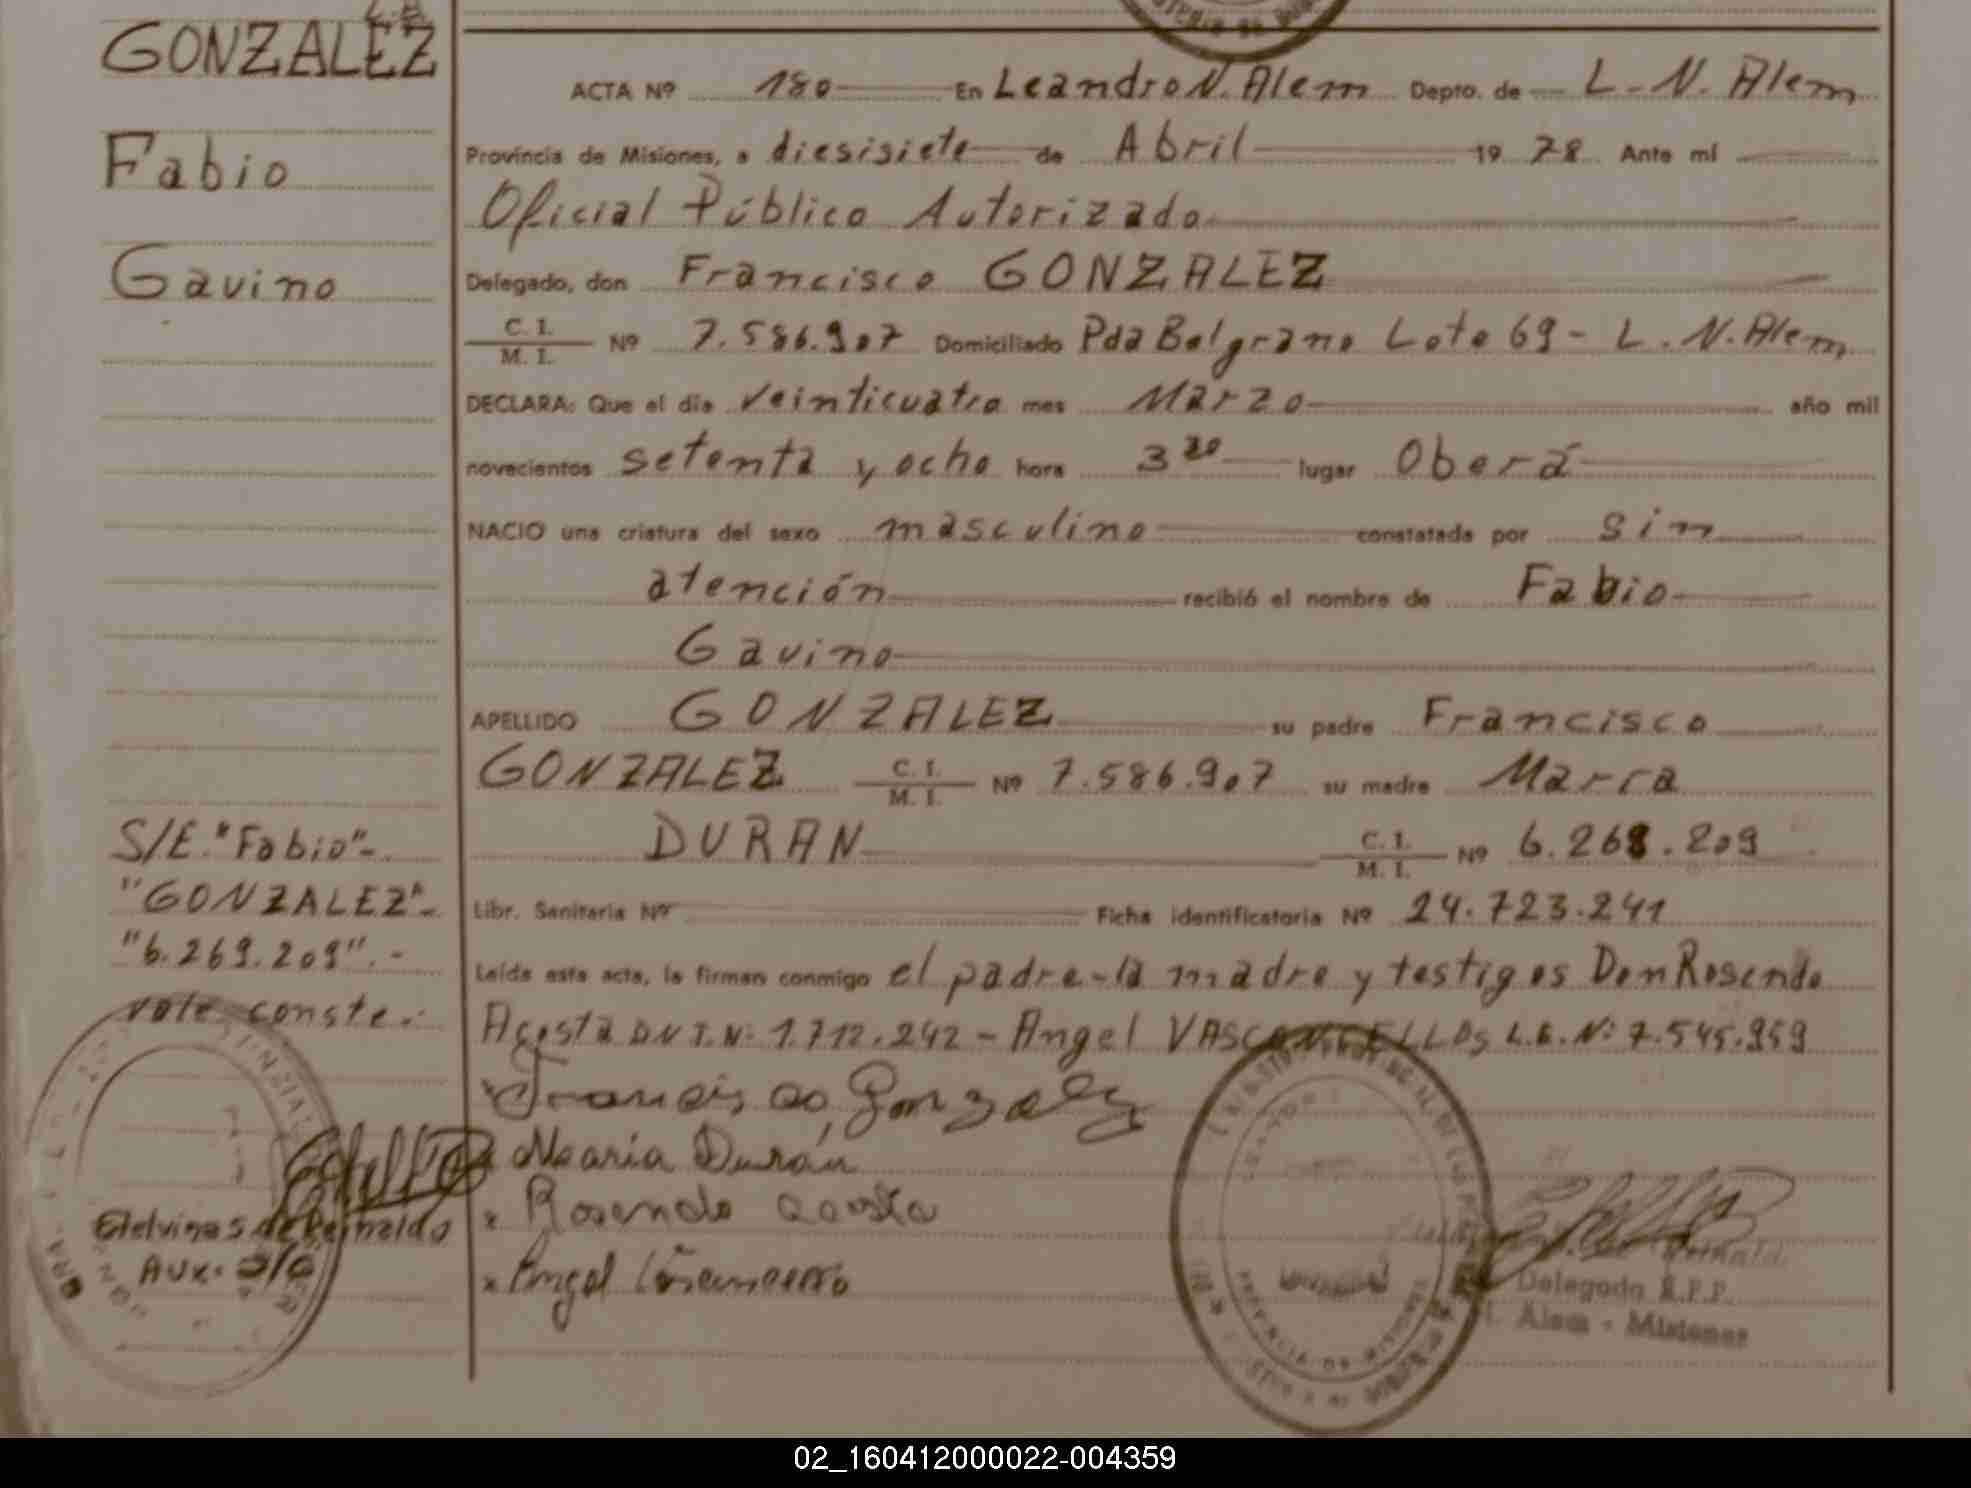 GONZALEZ
Fabio
Gavino
S/E. "Fabio"-.
"GONZALEZ"-
"6.269.209".-
vale, conste.-
Etelvina S. de Reinaldo
Aux. a/c
ACTA Nº 180 En Leandro N. Alem Depto. de L-N. Alem
Provincia de Misiones, a diesisiete de Abril 19 78 Ante mí
Oficial Público Autorizado
Delegado, don Francisco GONZALEZ
C. I.
M. I. Nº 7.586.907 Domiciliado Pda Belgrano Lote 69 - L. N. Alem
DECLARA: Que el día veinticuatro mes Marzo año mil
novecientos setenta y ocho hora 3 20 lugar Oberá
NACIO una criatura del sexo masculino constatada por sin
atención recibió el nombre de Fabio
Gavino
APELLIDO GONZALEZ su padre Francisco
GONZALEZ C. I.
M. I. Nº 7.586.907 su madre María
DURAN C. I.
M. I. Nº 6.269.209
Libr. Sanitaria Nº Ficha identificatoria Nº 24.723.241
Leída esta acta, la firman conmigo el padre-la madre y testigos Don Rosendo
Acosta DNI.N: 1.712.242 - Angel VASCONCELLOS L.E.N: 7.545.959
Francisco, Gonzalez
Maria Durán
x Rosendo Acosta
x Angel
PROVINCIA DE MISIONES
Delegada R.P.P.
Alem - Misiones
02_160412000022-004359